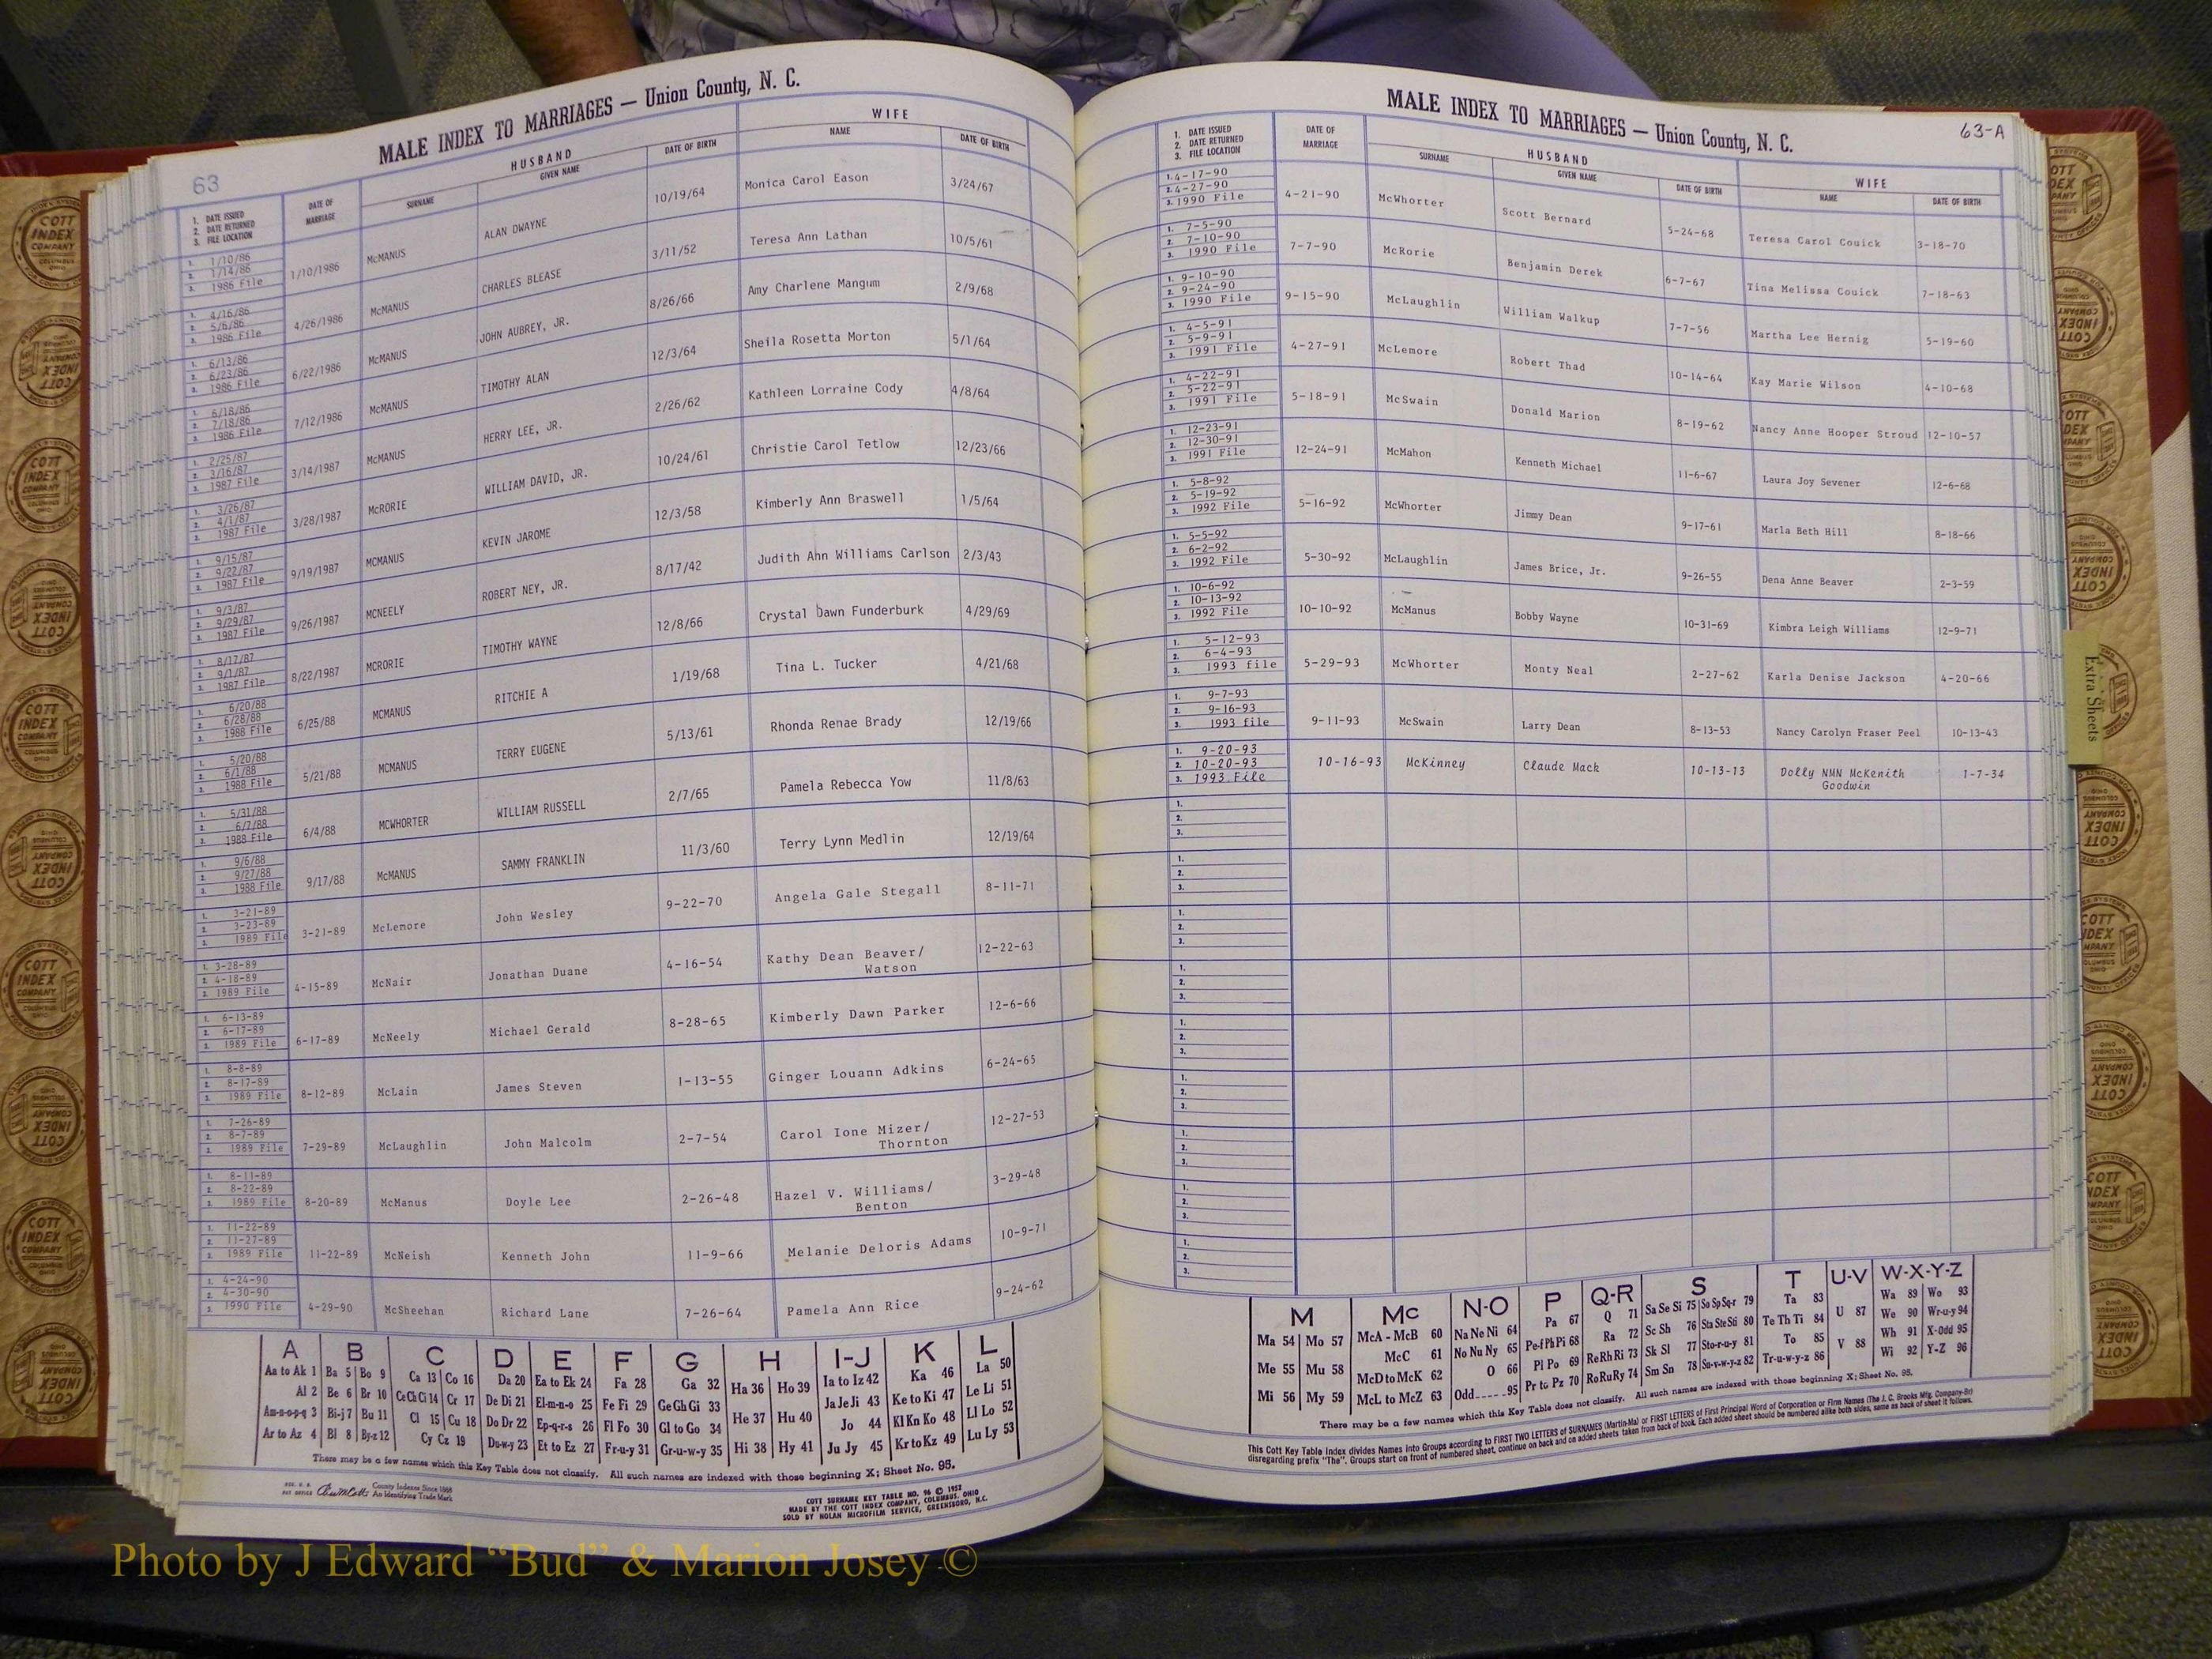 63
MALE INDEX TO MARRIAGES — Union County, N. C.
1. DATE ISSUED
2. DATE RETURNED
3. FILE LOCATION
DATE OF MARRIAGE
HUSBAND
SURNAME GIVEN NAME DATE OF BIRTH
WIFE
NAME DATE OF BIRTH
1. 1/10/86
2. 1/14/86
3. 1986 File
1/10/1986 McMANUS ALAN DWAYNE 10/19/64 Monica Carol Eason 3/24/67
1. 4/16/86
2. 5/6/86
3. 1986 File
4/26/1986 McMANUS CHARLES BLEASE 3/11/52 Teresa Ann Lathan 10/5/61
1. 6/13/86
2. 6/23/86
3. 1986 File
6/22/1986 McMANUS JOHN AUBREY, JR. 8/26/66 Amy Charlene Mangum 2/9/68
1. 6/18/86
2. 7/18/86
3. 1986 File
7/12/1986 McMANUS TIMOTHY ALAN 12/3/64 Sheila Rosetta Morton 5/1/64
1. 2/25/87
2. 3/16/87
3. 1987 File
3/14/1987 McMANUS HERRY LEE, JR. 2/26/62 Kathleen Lorraine Cody 4/8/64
1. 3/26/87
2. 4/1/87
3. 1987 File
3/28/1987 McRORIE WILLIAM DAVID, JR. 10/24/61 Christie Carol Tetlow 12/23/66
1. 9/15/87
2. 9/22/87
3. 1987 File
9/19/1987 MCMANUS KEVIN JAROME 12/3/58 Kimberly Ann Braswell 1/5/64
1. 9/3/87
2. 9/29/87
3. 1987 File
9/26/1987 MCNEELY ROBERT NEY, JR. 8/17/42 Judith Ahn Williams Carlson 2/3/43
1. 8/17/87
2. 9/1/87
3. 1987 File
8/22/1987 MCRORIE TIMOTHY WAYNE 12/8/66 Crystal Dawn Funderburk 4/29/69
1. 6/20/88
2. 6/28/88
3. 1988 File
6/25/88 MCMANUS RITCHIE A 1/19/68 Tina L. Tucker 4/21/68
1. 5/20/88
2. 6/1/88
3. 1988 File
5/21/88 MCMANUS TERRY EUGENE 5/13/61 Rhonda Renae Brady 12/19/66
1. 5/31/88
2. 6/7/88
3. 1988 File
6/4/88 MCWHORTER WILLIAM RUSSELL 2/7/65 Pamela Rebecca Yow 11/8/63
1. 9/6/88
2. 9/27/88
3. 1988 File
9/17/88 McMANUS SAMMY FRANKLIN 11/3/60 Terry Lynn Medlin 12/19/64
1. 3-21-89
2. 3-23-89
3. 1989 File
3-21-89 McLemore John Wesley 9-22-70 Angela Gale Stegall 8-11-71
1. 3-28-89
2. 4-18-89
3. 1989 File
4-15-89 McNair Jonathan Duane 4-16-54 Kathy Dean Beaver/ 12-22-63
Watson
1. 6-13-89
2. 6-17-89
3. 1989 File
6-17-89 McNeely Michael Gerald 8-28-65 Kimberly Dawn Parker 12-6-66
1. 8-8-89
2. 8-17-89
3. 1989 File
8-12-89 McLain James Steven 1-13-55 Ginger Louann Adkins 6-24-65
1. 7-26-89
2. 8-7-89
3. 1989 File
7-29-89 McLaughlin John Malcolm 2-7-54 Carol Ione Mizer/ 12-27-53
Thornton
1. 8-11-89
2. 8-22-89
3. 1989 File
8-20-89 McManus Doyle Lee 2-26-48 Hazel V. Williams/ 3-29-48
Benton
1. 11-22-89
2. 11-27-89
3. 1989 File
11-22-89 McNeish Kenneth John 11-9-66 Melanie Deloris Adams 10-9-71
1. 4-24-90
2. 4-30-90
3. 1990 File
4-29-90 McSheehan Richard Lane 7-26-64 Pamela Ann Rice 9-24-62
A B C D E F G H I-J K L
Aa to Ak 1 Ba 5 Bo 9 Ca 13 Co 16 Da 20 Ea to Ek 24 Fa 28 Ga 32 Ha 36 Ho 39 Ia to Iz 42 Ka 46 La 50
Al 2 Be 6 Br 10 Ce Ch Ci 14 Cr 17 De Di 21 El-m-n-o 25 Fe Fi 29 Ge Gh Gi 33 Ja Je Ji 43 Ke to Ki 47 Le Li 51
Am-n-o-p-q 3 Bi-j 7 Bu 11 Cl 15 Cu 18 Do Dr 22 Ep-q-r-s 26 Fl Fo 30 Gl to Go 34 He 37 Hu 40 Jo 44 Kl Kn Ko 48 Ll Lo 52
Ar to Az 4 Bl 8 By-z 12 Cy Cz 19 Du-w-y 23 Et to Ez 27 Fr-u-y 31 Gr-u-w-y 35 Hi 38 Hy 41 Ju Jy 45 Kr to Kz 49 Lu Ly 53
There may be a few names which this Key Table does not classify. All such names are indexed with those beginning X; Sheet No. 95.
County Indexes Since 1888
An Identifying Trade Mark
COTT SURNAME KEY TABLE NO. 96 © 1952
MADE BY THE COTT INDEX COMPANY, COLUMBUS, OHIO
SOLD BY NOLAN MICROFILM SERVICE, GREENSBORO, N.C.
MALE INDEX TO MARRIAGES — Union County, N. C.
63-A
1. DATE ISSUED
2. DATE RETURNED
3. FILE LOCATION
DATE OF MARRIAGE
HUSBAND
SURNAME GIVEN NAME DATE OF BIRTH
WIFE
NAME DATE OF BIRTH
1. 4-17-90
2. 4-27-90
3. 1990 File
4-21-90 McWhorter Scott Bernard 5-24-68 Teresa Carol Couick 3-18-70
1. 7-5-90
2. 7-10-90
3. 1990 File
7-7-90 McRorie Benjamin Derek 6-7-67 Tina Melissa Couick 7-18-63
1. 9-10-90
2. 9-24-90
3. 1990 File
9-15-90 McLaughlin William Walkup 7-7-56 Martha Lee Hernig 5-19-60
1. 4-5-91
2. 5-9-91
3. 1991 File
4-27-91 McLemore Robert Thad 10-14-64 Kay Marie Wilson 4-10-68
1. 4-22-91
2. 5-22-91
3. 1991 File
5-18-91 McSwain Donald Marion 8-19-62 Nancy Anne Hooper Stroud 12-10-57
1. 12-23-91
2. 12-30-91
3. 1991 File
12-24-91 McMahon Kenneth Michael 11-6-67 Laura Joy Sevener 12-6-68
1. 5-8-92
2. 5-19-92
3. 1992 File
5-16-92 McWhorter Jimmy Dean 9-17-61 Marla Beth Hill 8-18-66
1. 5-5-92
2. 6-2-92
3. 1992 File
5-30-92 McLaughlin James Brice, Jr. 9-26-55 Dena Anne Beaver 2-3-59
1. 10-6-92
2. 10-13-92
3. 1992 File
10-10-92 McManus Bobby Wayne 10-31-69 Kimbra Leigh Williams 12-9-71
1. 5-12-93
2. 6-4-93
3. 1993 file
5-29-93 McWhorter Monty Neal 2-27-62 Karla Denise Jackson 4-20-66
1. 9-7-93
2. 9-16-93
3. 1993 file
9-11-93 McSwain Larry Dean 8-13-53 Nancy Carolyn Fraser Peel 10-13-43
1. 9-20-93
2. 10-20-93
3. 1993 File
10-16-93 McKinney Claude Mack 10-13-13 Dolly NMN McKenith 1-7-34
Goodwin
1.
2.
3.
1.
2.
3.
1.
2.
3.
1.
2.
3.
1.
2.
3.
1.
2.
3.
1.
2.
3.
1.
2.
3.
1.
2.
3.
M Mc N-O P Q-R S T U-V W-X-Y-Z
Ma 54 Mo 57 McA - McB 60 Na Ne Ni 64 Pa 67 Q 71 Sa Se Si 75 So Sp Sq-r 79 Ta 83 Wa 89 Wo 93
McC 61 No Nu Ny 65 Pe-f Ph Pi 68 Ra 72 Sc Sh 76 Sta Ste Sti 80 Te Th Ti 84 U 87 We 90 Wr-u-y 94
Me 55 Mu 58 McD to McK 62 O 66 Pl Po 69 Re Rh Ri 73 Sk Sl 77 Sto-r-u-y 81 To 85 V 88 Wh 91 X-Odd 95
Mi 56 My 59 McL to McZ 63 Odd.....95 Pr to Pz 70 Ro Ru Ry 74 Sm Sn 78 Su-v-w-y-z 82 Tr-u-w-y-z 86 Wi 92 Y-Z 96
There may be a few names which this Key Table does not classify. All such names are indexed with those beginning X; Sheet No. 95.
This Cott Key Table Index divides Names into Groups according to FIRST TWO LETTERS of SURNAMES (Martin-Ma) or FIRST LETTERS of First Principal Word of Corporation or Firm Names (The J. C. Brooks Mfg. Company-Br)
disregarding prefix "The". Groups start on front of numbered sheet, continue on back and on added sheets taken from back of book. Each added sheet should be numbered alike both sides, same as back of sheet it follows.
Extra Sheets
COTT
INDEX
COMPANY
COLUMBUS
OHIO
Photo by J Edward “Bud” & Marion Josey ©